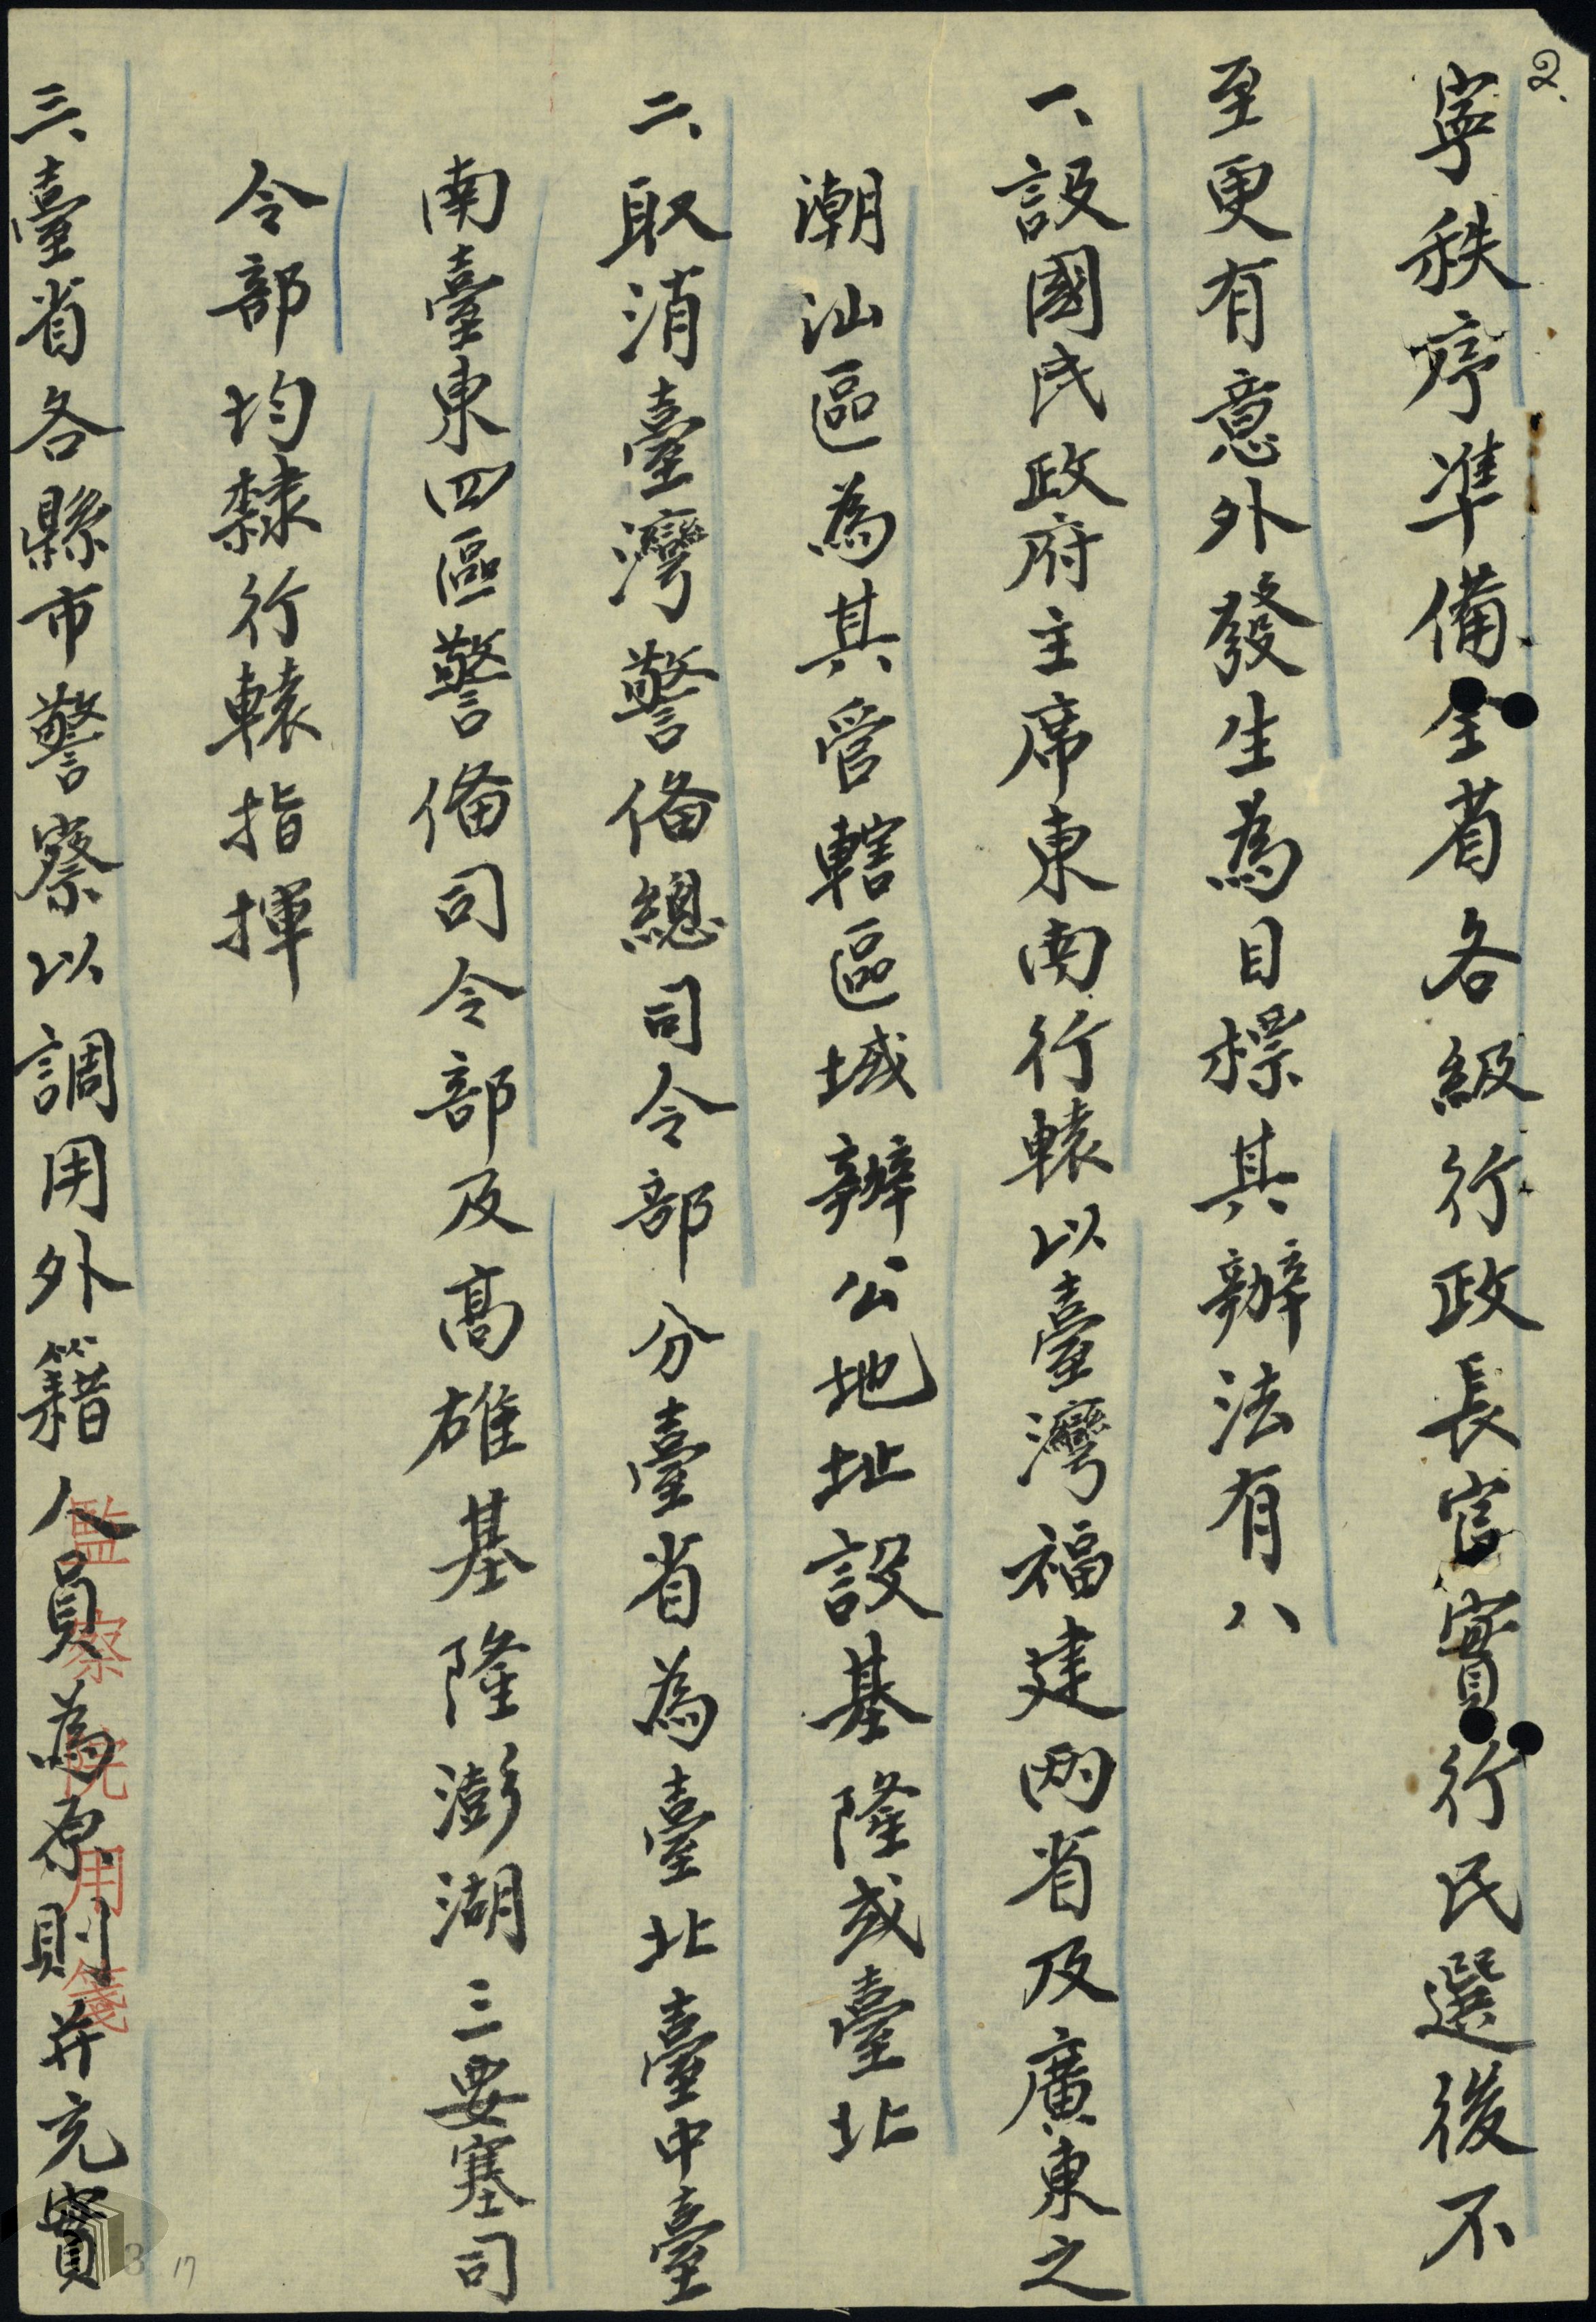 2.
寧秩序準備全省各級行政長官實行民選後不
至更有意外發生為目標其辦法有八
一、設國民政府主席東南行轅以臺灣福建兩省及廣東之
潮汕區為其管轄區域辦公地址設基隆或臺北
二、取消臺灣警备總司令部分臺省為臺北臺中臺
南臺東四區警备司令部及高雄基隆澎湖三要塞司
令部均隸行轅指揮
三、臺省各縣市警察以調用外籍人員為原則并充實
監察院用箋
3 17